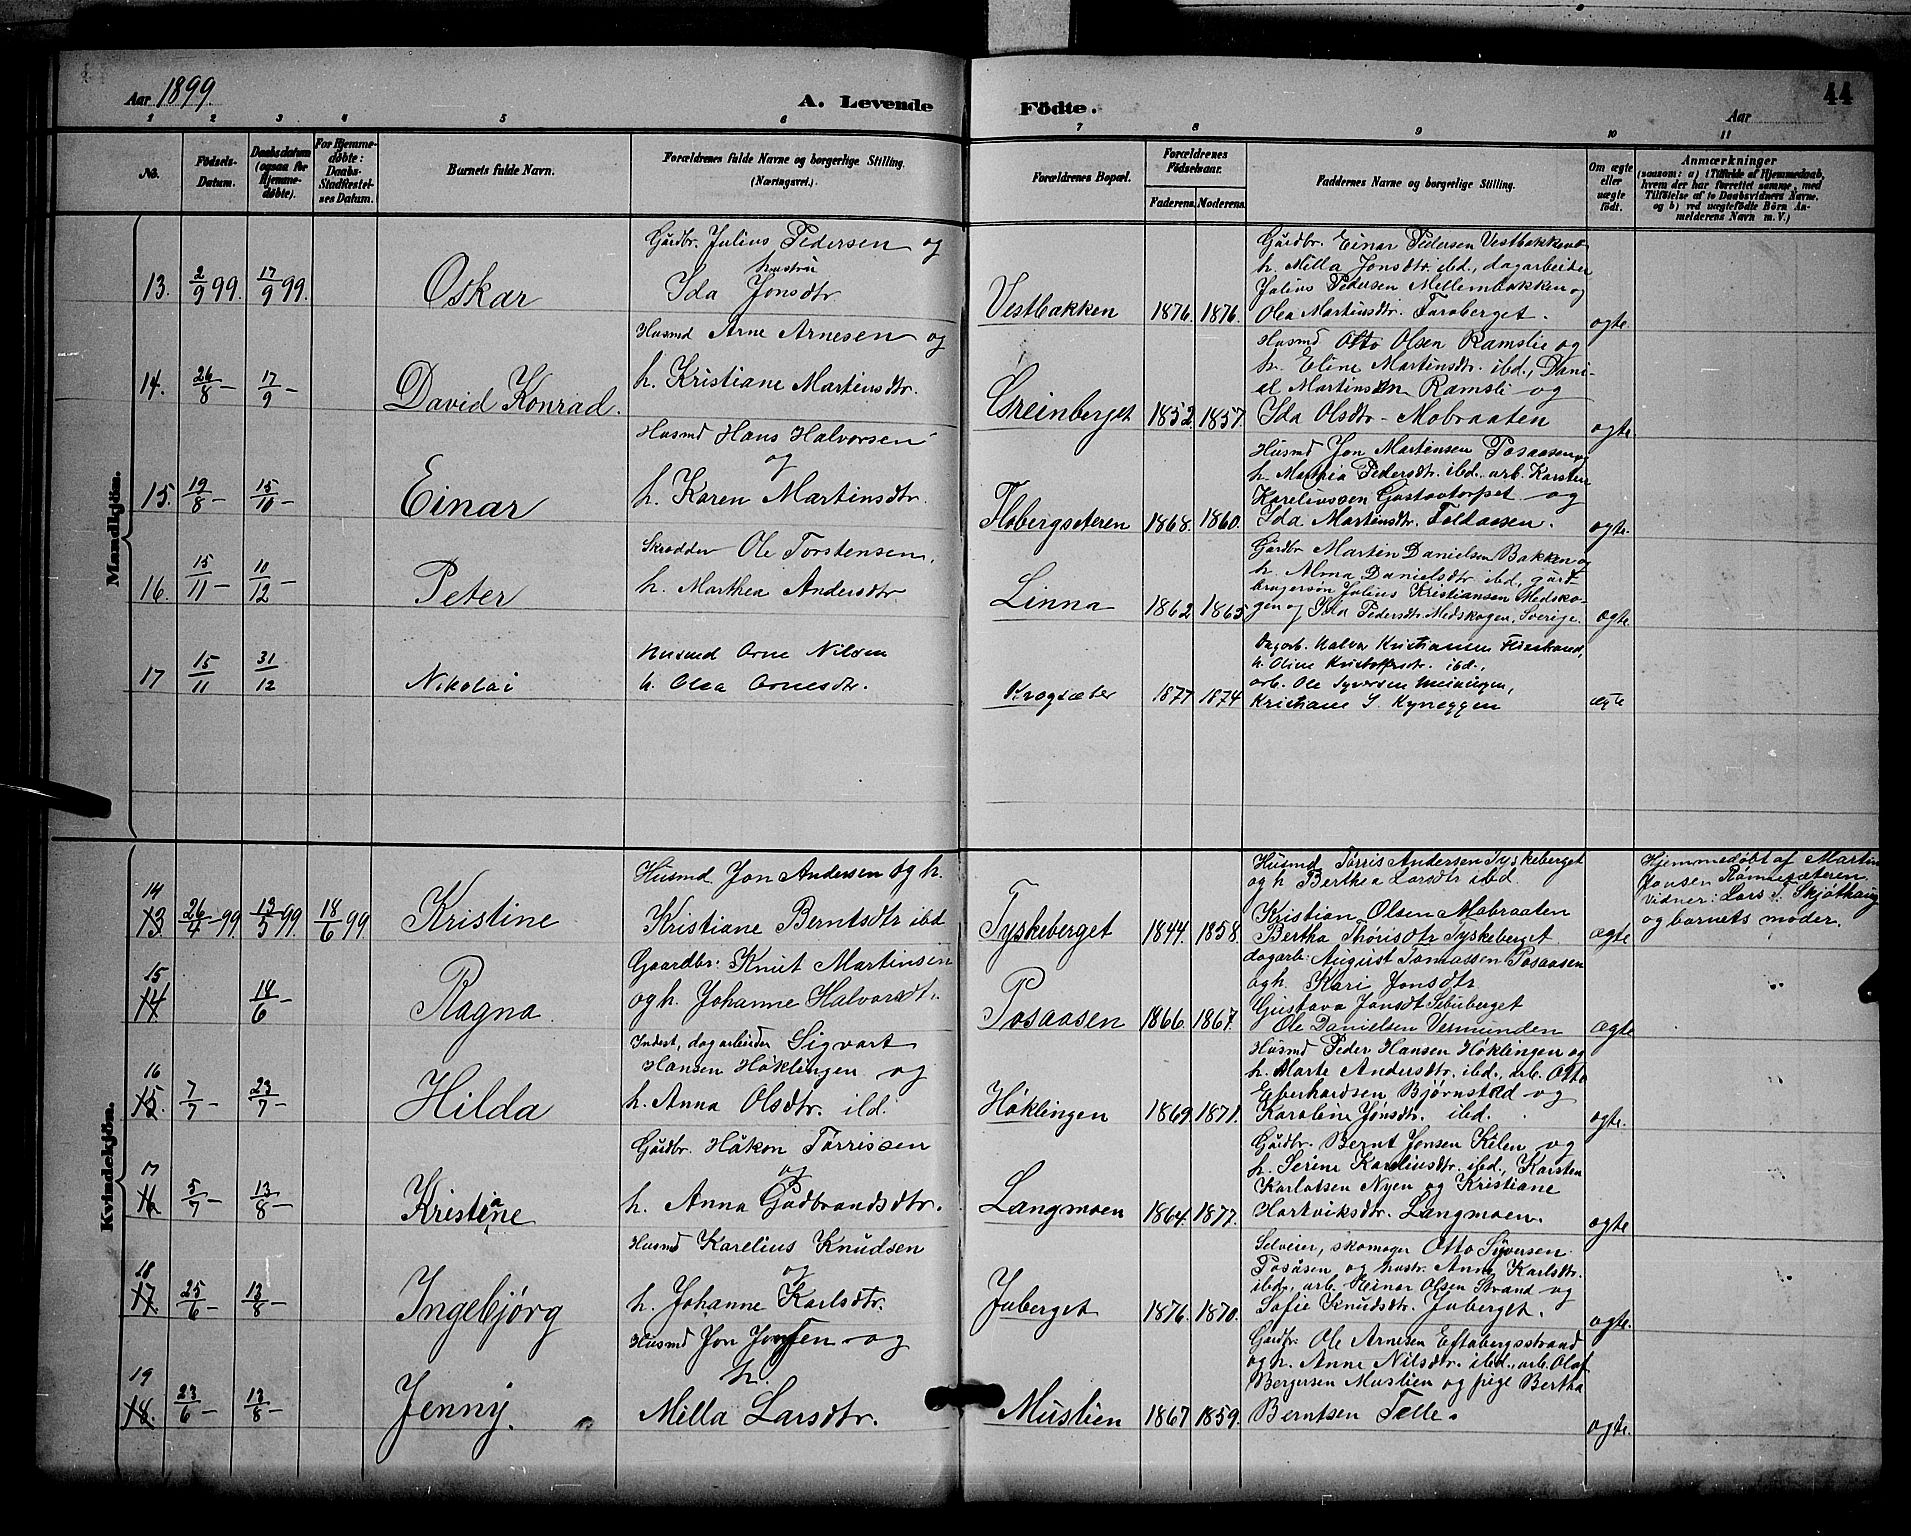 44
Aar 1899.
A. Levende
Födte.
Aar
1 2 3 4 5 6 7 8 9 10 11
No.
Födsels-
Datum.
Daabsdatum
(ogsaa for
Hjemme-
døbte).
For Hjemme-
døbte:
Daabs-
Stadfæstel-
ses Datum.
Barnets fulde Navn.
Forældrenes fulde Navne og borgerlige Stilling.
(Næringsvei.)
Forældrenes Bopæl.
Forældrenes
Födselsaar.
Faderens. Moderens.
Faddernes Navne og borgerlige Stilling.
Om ægte
eller
uægte
födt.
Anmærkninger
(saasom: a) i Tilfælde af Hjemmedaab,
hvem der har forrettet samme, med
Tilföielse af to Daabsvidners Navne.
og b) ved uægtefödte Börn An-
melderens Navn m. V.)
Mandkjön.
13. 2/9 99. 17/9 99.
Oskar
Gårdbr. Julius Pedersen og
hustru
Ida Jonsdtr
Vestbakken 1876. 1876.
Gårdbr. Einar Pedersen Vestbakken
h. Milla Jonsdtr. ibd., dagarbeider
Julius Pedersen Mellembakken og
Olea Martinsdtr.
ægte
14. 26/8 – 17/9 –
David Konrad.
Husmd Arne Arnesen og
h. Kristiane Martinsdtr.
Greinberget 1852. 1857.
Husmd Otto Olsen Ramslie og
h. Eline Martinsdtr. ibd., Dani-
el Martinsen Ramsli og
Ida Olsdtr – Mobraaten
ægte
15. 19/8 – 15/10 –
Einar
Husmd Hans Halvorsen
og
h. Karen Martinsdtr.
Flobergseteren 1868. 1860.
Husmd Jon Martinsen Posaasen og
h. Mathea Pedersdtr. ibd. arb. Karsten
Kareliussen Gustavtorpet og
Ida Martinsdtr. Foldaasen.
ægte.
16. 15/11 – 10/12 –
Peter
Skrædder Ole Torstensen,
h. Marthea Andersdtr
Linna 1862 1865
Gårdbr Martin Danielsen Bakken og
h. Alma Danielsdtr ibd, gård-
brugersøn Julius Kristiansen Medsko-
gen og Ida Pedersdtr. Medskogen, Sverige.
ægte
17 15/11 31/12
Nikolai
Husmd Arne Nilsen
h. Olea Arnesdtr.
Krogsæter 1877 1874
Dagarb. Halvor Kristiansen
h. Oline Kristoffersdtr. ibd.,
arb. Ole Syversen
Kristiane S. Kyneggen
ægte
Kvindekjön.
14
13 26/4 99 13/5 99. 18/6 99
Kristine
Husmd. Jon Andersen og h.
Kristiane Berntsdtr ibd
Tyskeberget 1844. 1858.
Husmd Tørris Andersen Tyskeberget
og h Berthea Larsdtr ibd.
Kristian Olsen Mobraaten
Bertha Thørisdtr Tyskeberget.
ægte
Hjemmedøbt af Martin
Jonsen Rønnesæteren.
vidner: Lars T. Skjøthaug
og barnets moder.
15
14 18/6 –
Ragna.
Gaardbr: Knut Martinsen
og h. Johanne Halvorsdtr.
Posaasen 1866. 1867.
dagarb: August Tomassen Posaasen
og h. Kari Jonsdtr
Gustava Jonsdt Sebuberget
Ole Danielsen Vermunden
Ægte
16
15. 7/7 – 23/7 –
Hilda
Inderst, dagarbeider Sigvart
Hansen Høklingen og
h. Anna Olsdtr. ibd.
Høklingen 1869 1871.
Husmd Peder Hansen Høklingen og
h. Marte Andersdtr. ibd., arb. Otto
Eberhardsen Bjørnstad og
Karoline Jonsdtr. ibd.
ægte.
17
16 5/7 – 13/8 –
Kristine
a
Gårdbr. Håkon Tørrissen
og
h. Anna Gudbrandsdtr.
Langmoen 1864. 1877.
Gårdbr. Bernt Jonsen Kilen og
h. Serine Kareliusdtr. ibd., Karsten
Karlotsen Nyen og Kristiane
Hartviksdtr. Langmoen.
ægte.
18
17 25/6 – 13/8 –
Ingebjørg
Husmd Karelius Knudsen
og
h. Johanne Karlsdtr.
Juberget 1876. 1870.
Selveier, skomager Otto Syversen
Posåsen og hustr. Anne Karlsdtr.
ibd., arb. Einar Olsen Strand og
Sofie Knudsdtr. Juberget.
ægte.
19
18. 23/6 – 13/8 –
Jenny.
Husmd Jon Jonsen og
h.
Milla Larsdtr.
Muslien 1867 1859.
Gårdbr. Ole Arnesen Eftabergsstrand
og h. Anne Nilsdtr. ibd., arb. Olaf
Bergersen Muslien og pige Bertha
Berntsen Telle.
ægte.